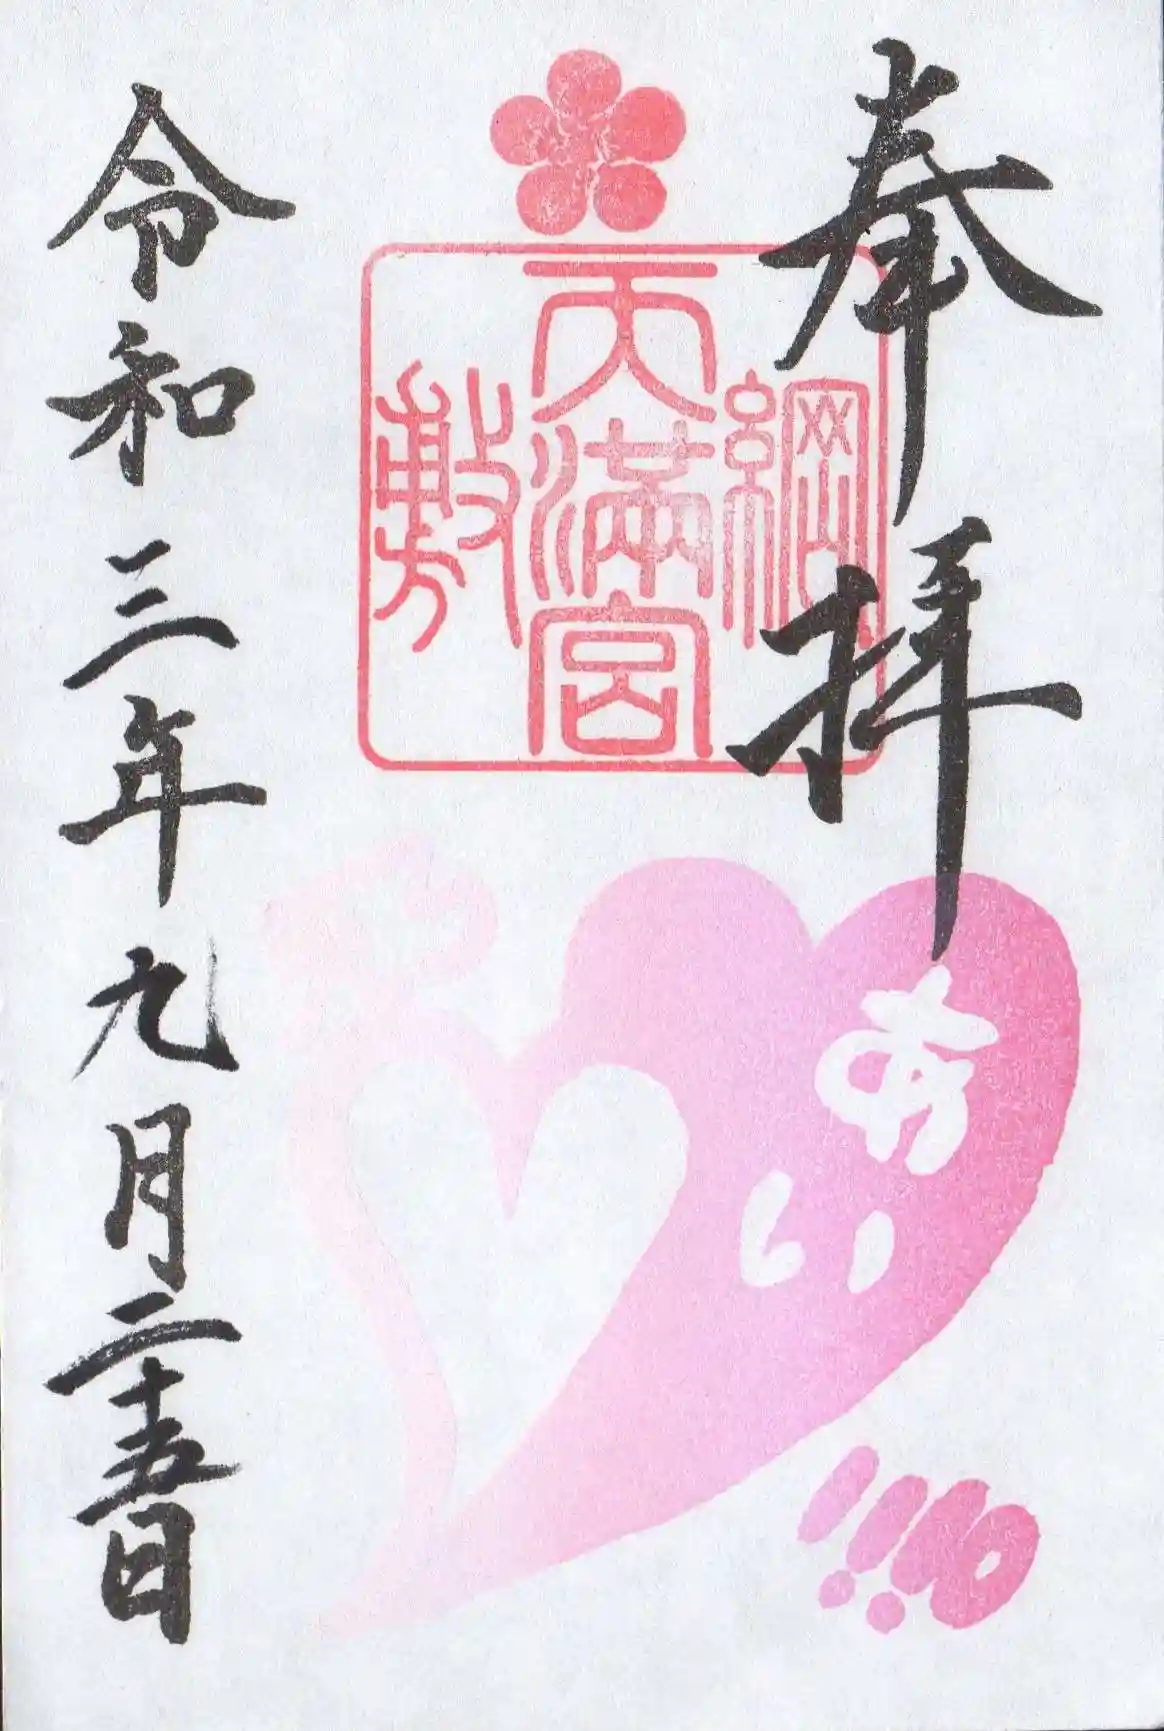 奉拝
綱
天満宮
敷
あい
令和三年九月二十五日